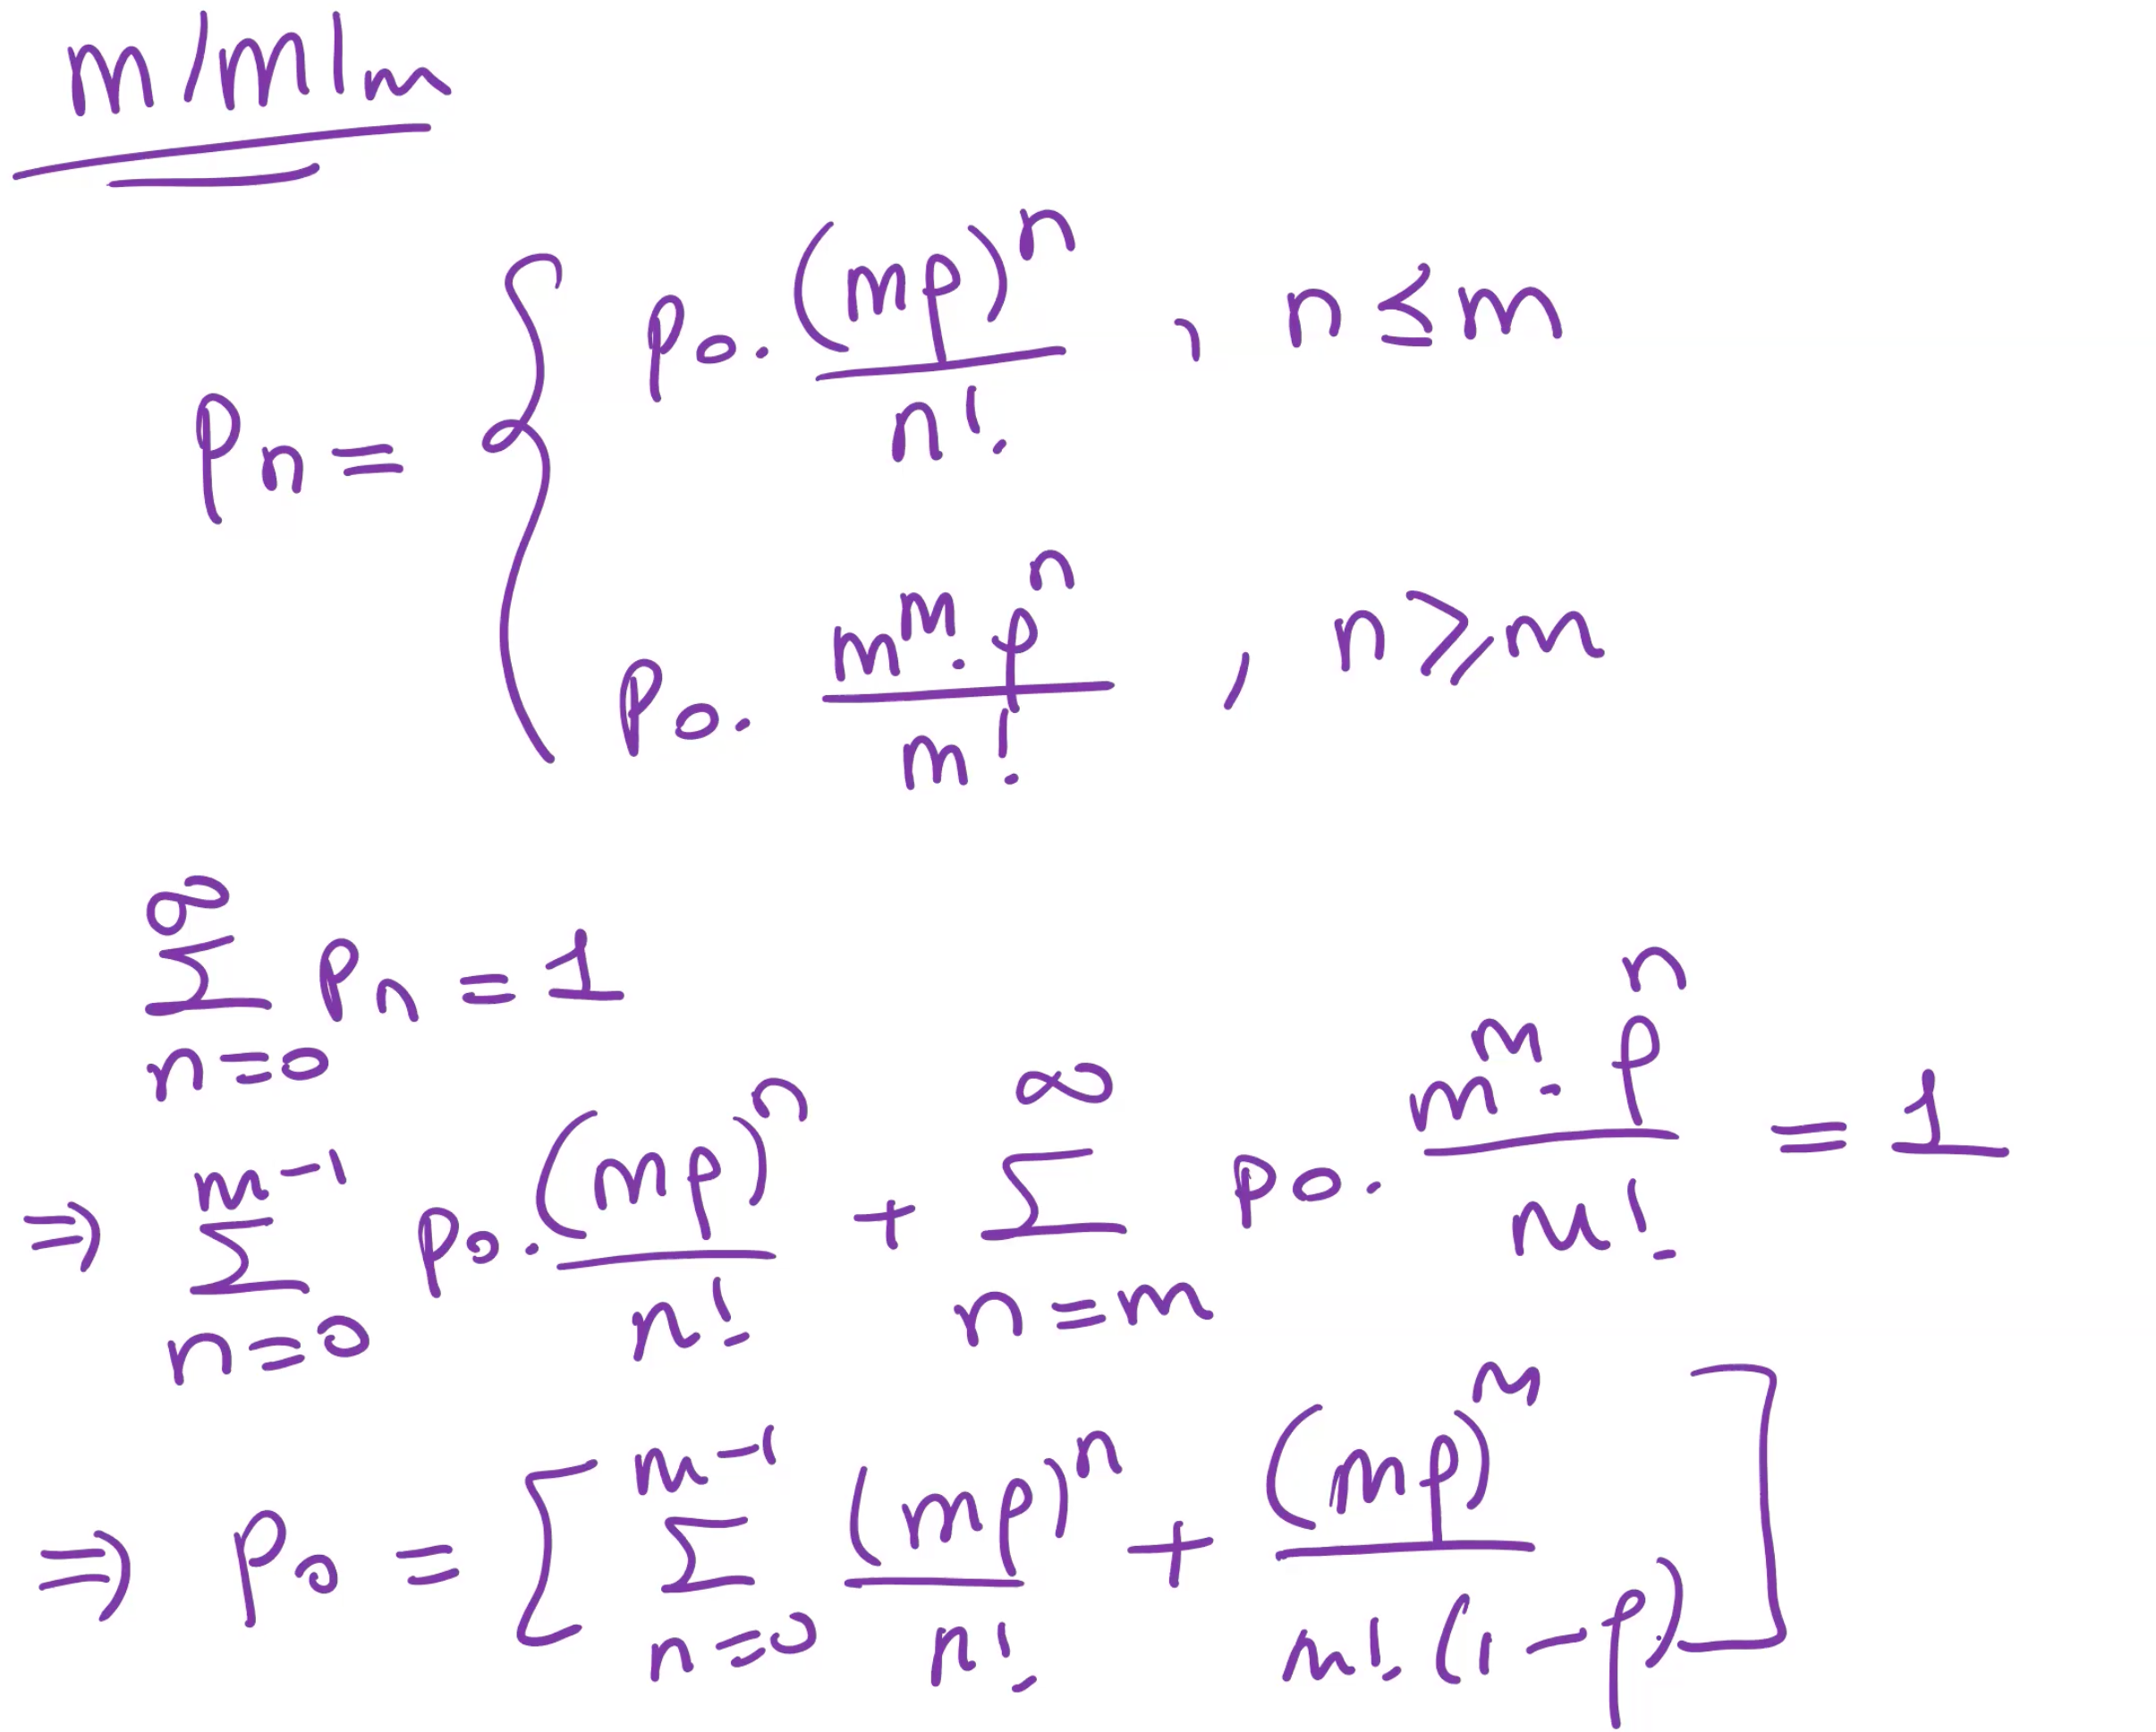 M/M/m
pₙ = { p₀ · (mρ)ⁿ / n! , n ≤ m
p₀ · mᵐ · ρⁿ / m! , n ⩾ m
∑_{n=0}^{∞} pₙ = 1
⇒ ∑_{n=0}^{m-1} p₀ · (mρ)ⁿ / n! + ∑_{n=m}^{∞} p₀ · mᵐ · ρⁿ / m! = 1
⇒ p₀ = [ ∑_{n=0}^{m-1} (mρ)ⁿ / n! + (mρ)ᵐ / m! (1-ρ) ]